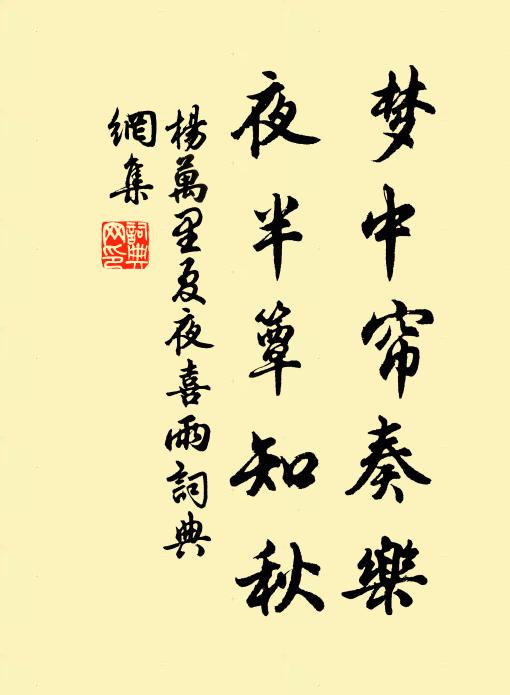 梦中帘奏樂
夜半簟知秋
楊萬里夏夜喜雨詞典
網集
詞典
网印